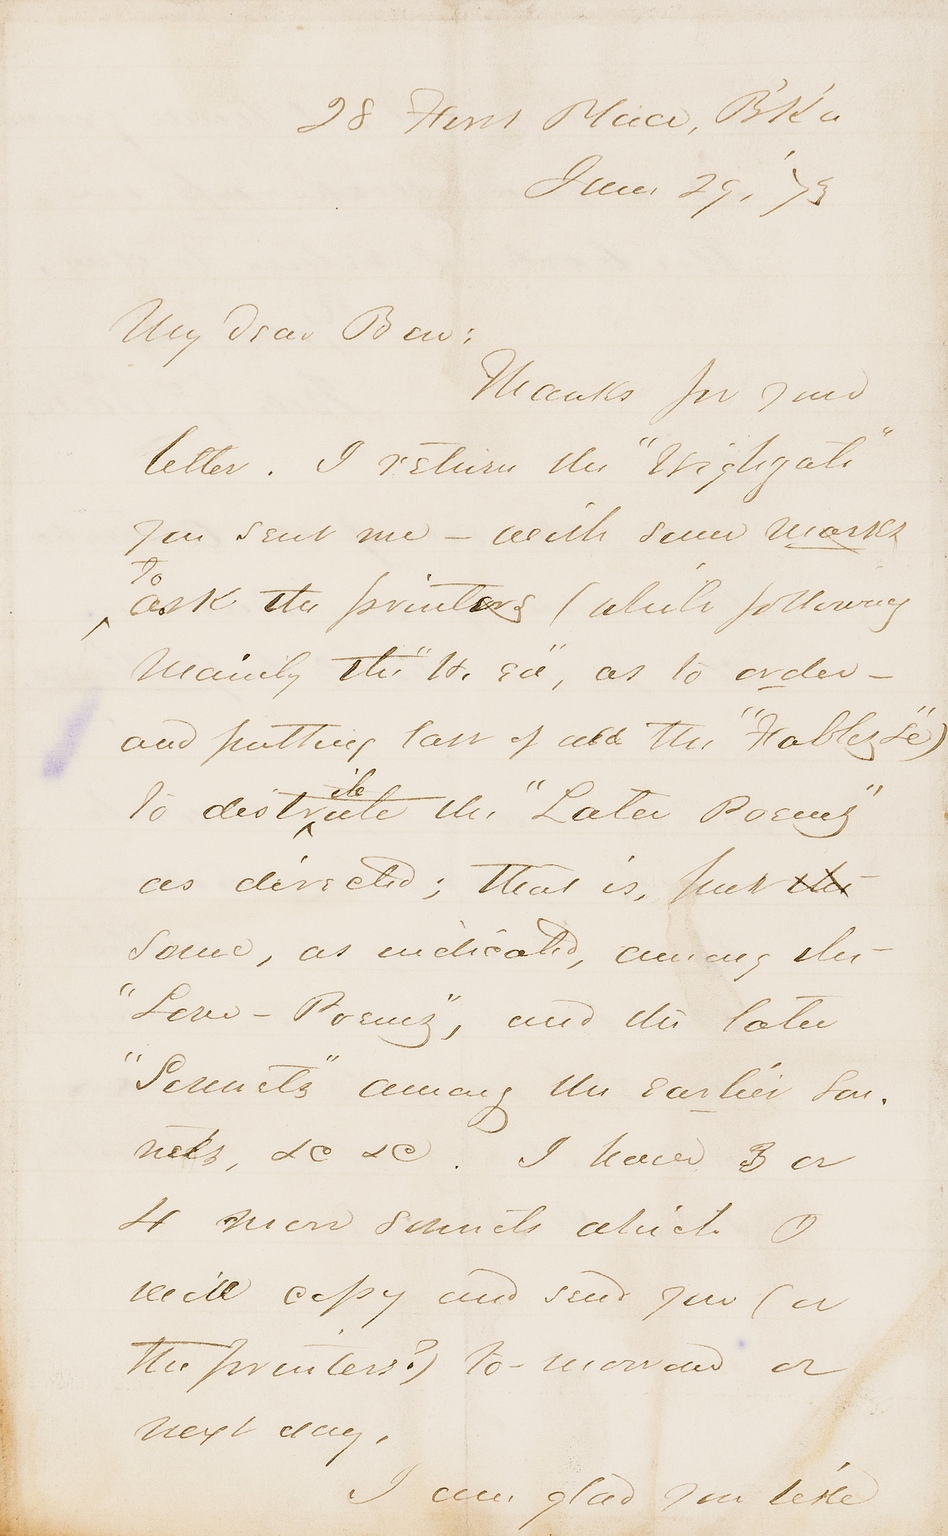 28 First Place, B'k'n
June 29, '73
My dear Ben:
Thanks for your
letter. I return the "Highgate"
you sent me — with some marks
To
ask the printers (while following
mainly the "H. ed", as to order —
and putting last of all the "Fables &c")
ib
to distrute the "Later Poems"
as directed; that is, put the
some, as indicated, among the
"Love-Poems", and the later
"Sonnets" among the earlier Son-
nets, &c &c. I have 3 or
4 more sonnets which I
will copy and send you (or
the printers?) to-morrow or
next day.
I am glad you like